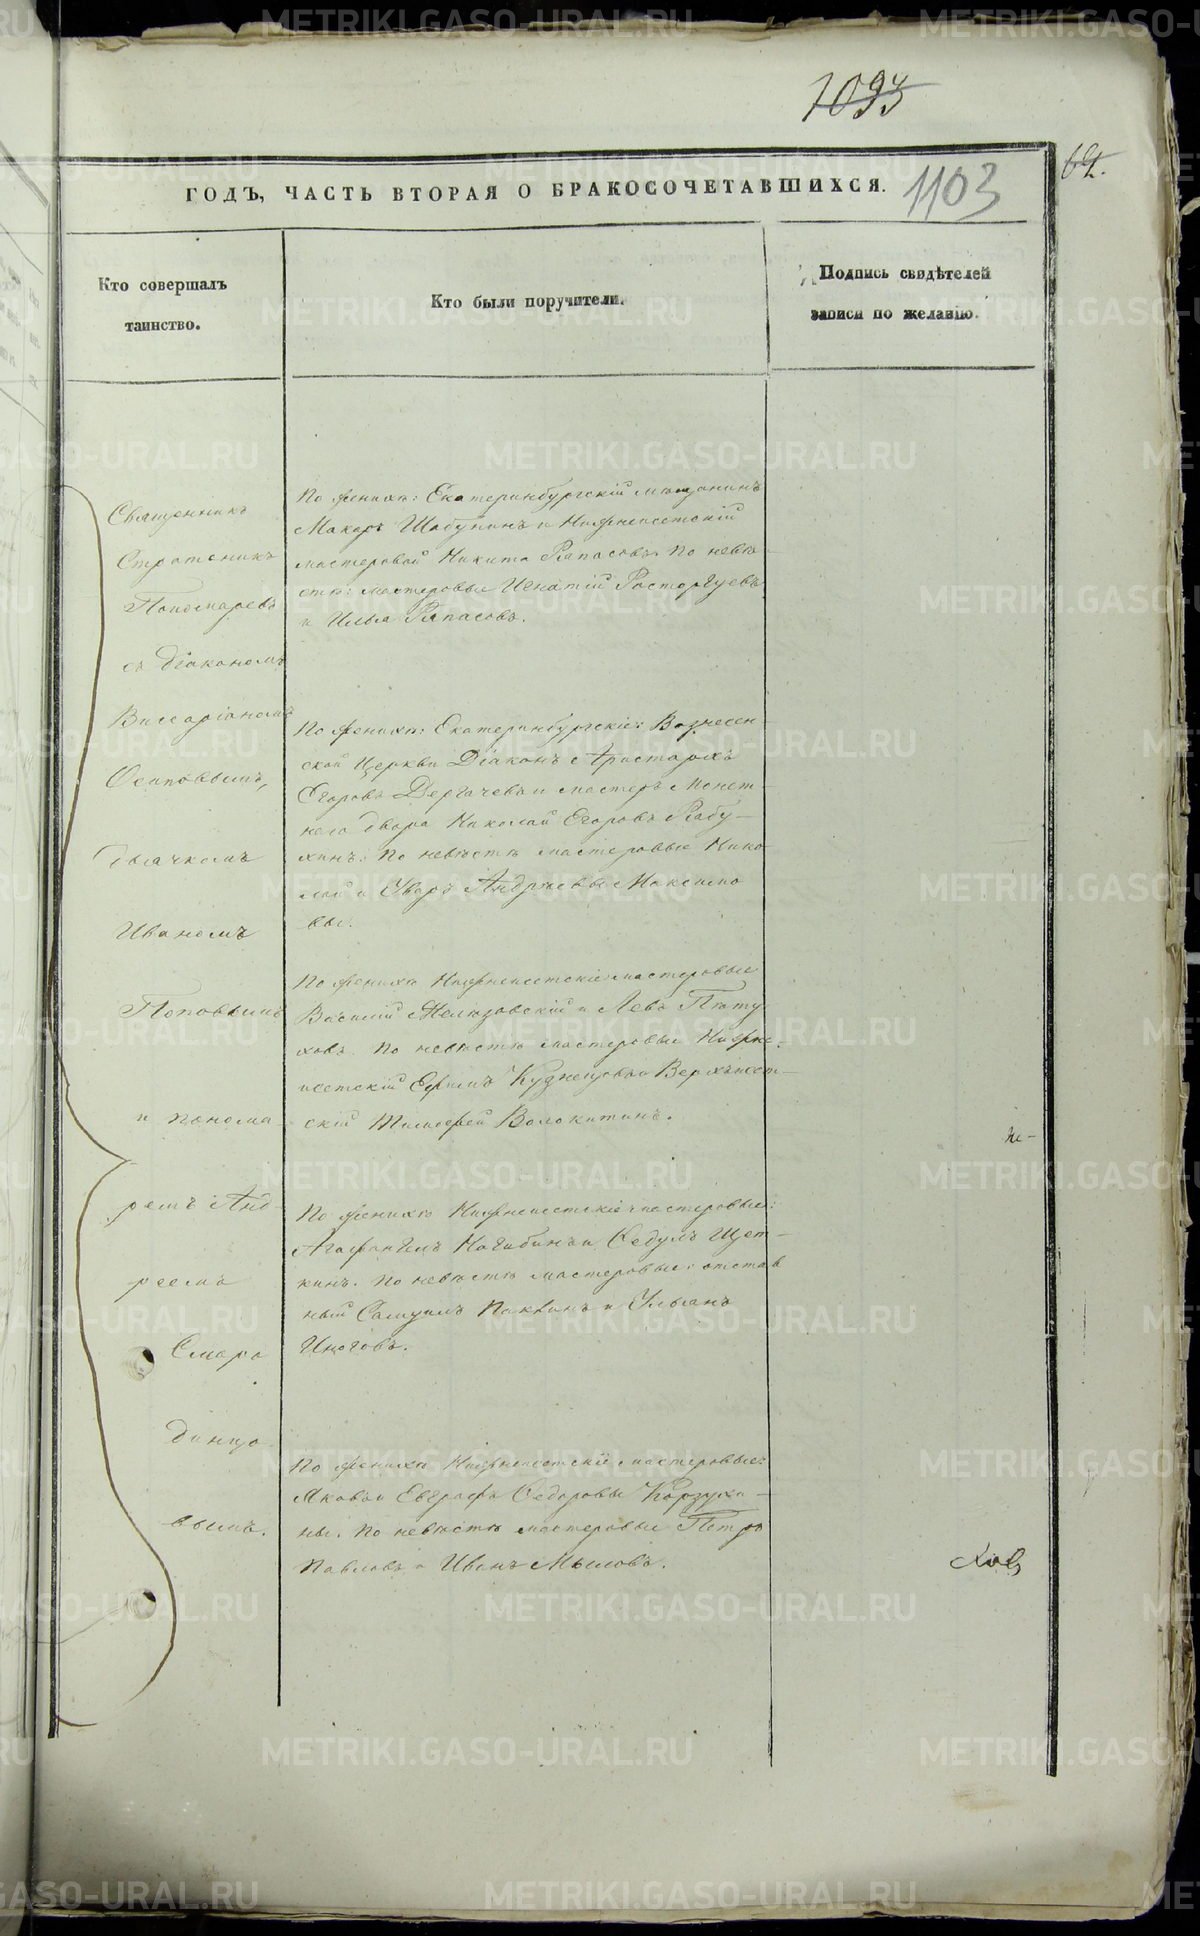 1093
62.
ГОДЪ, ЧАСТЬ ВТОРАЯ О БРАКОСОЧЕТАВШИХСЯ.
1103
Кто совершалъ
таинство.
Кто были поручители.
Подпись свидѣтелей
записи по желанію.
Священникъ
Стратоникъ
Пономаревъ
съ Діакономъ
Виссаріономъ
Осиповымъ,
дьячкомъ
Иваномъ
Поповымъ
и понома
ремъ Анд
реемъ
Смаро
динцо
вымъ.
По женихѣ: Екатеринбургскій мѣщанинъ
Макаръ Шабунинъ и Нижнеисетскій
мастеровой Никита Рапасовъ. По невѣ
стѣ: мастеровые Игнатій Расторгуевъ
и Илья Рапасовъ.
По женихѣ: Екатеринбургскіе: Вознесен-
ской Церкви Діаконъ Аристархъ
Егоровъ Дергачевъ и мастеръ Монет-
наго двора Николай Егоровъ Рабу-
хинъ. По невѣстѣ мастеровые Нико-
лай и Уваръ Андреевы Максимо
вы.
По женихѣ Нижнеисетскіе мастеровые
Василій Желѣзовскій и Левъ Пѣту
ховъ. По невѣстѣ мастеровые Нижне-
исетскій Ефимъ Кузнецовъ и Верхъисет-
скій Тимофей Волокитинъ.
По женихѣ Нижнеисетскіе мастеровые:
Агафангилъ Нагибинъ и Ѳедулъ Щет-
кинъ. По невѣстѣ мастеровые: отстав
ный Самуилъ Паквинъ и Ульянъ
Иноговъ.
По женихѣ Нижнеисетскіе мастеровые:
Яковъ и Евграфъ Ѳедоровы Корзухи-
ны. По невѣстѣ мастеровые Петръ
Павловъ и Иванъ Мыловъ.
METRIKI.GASO-URAL.RU